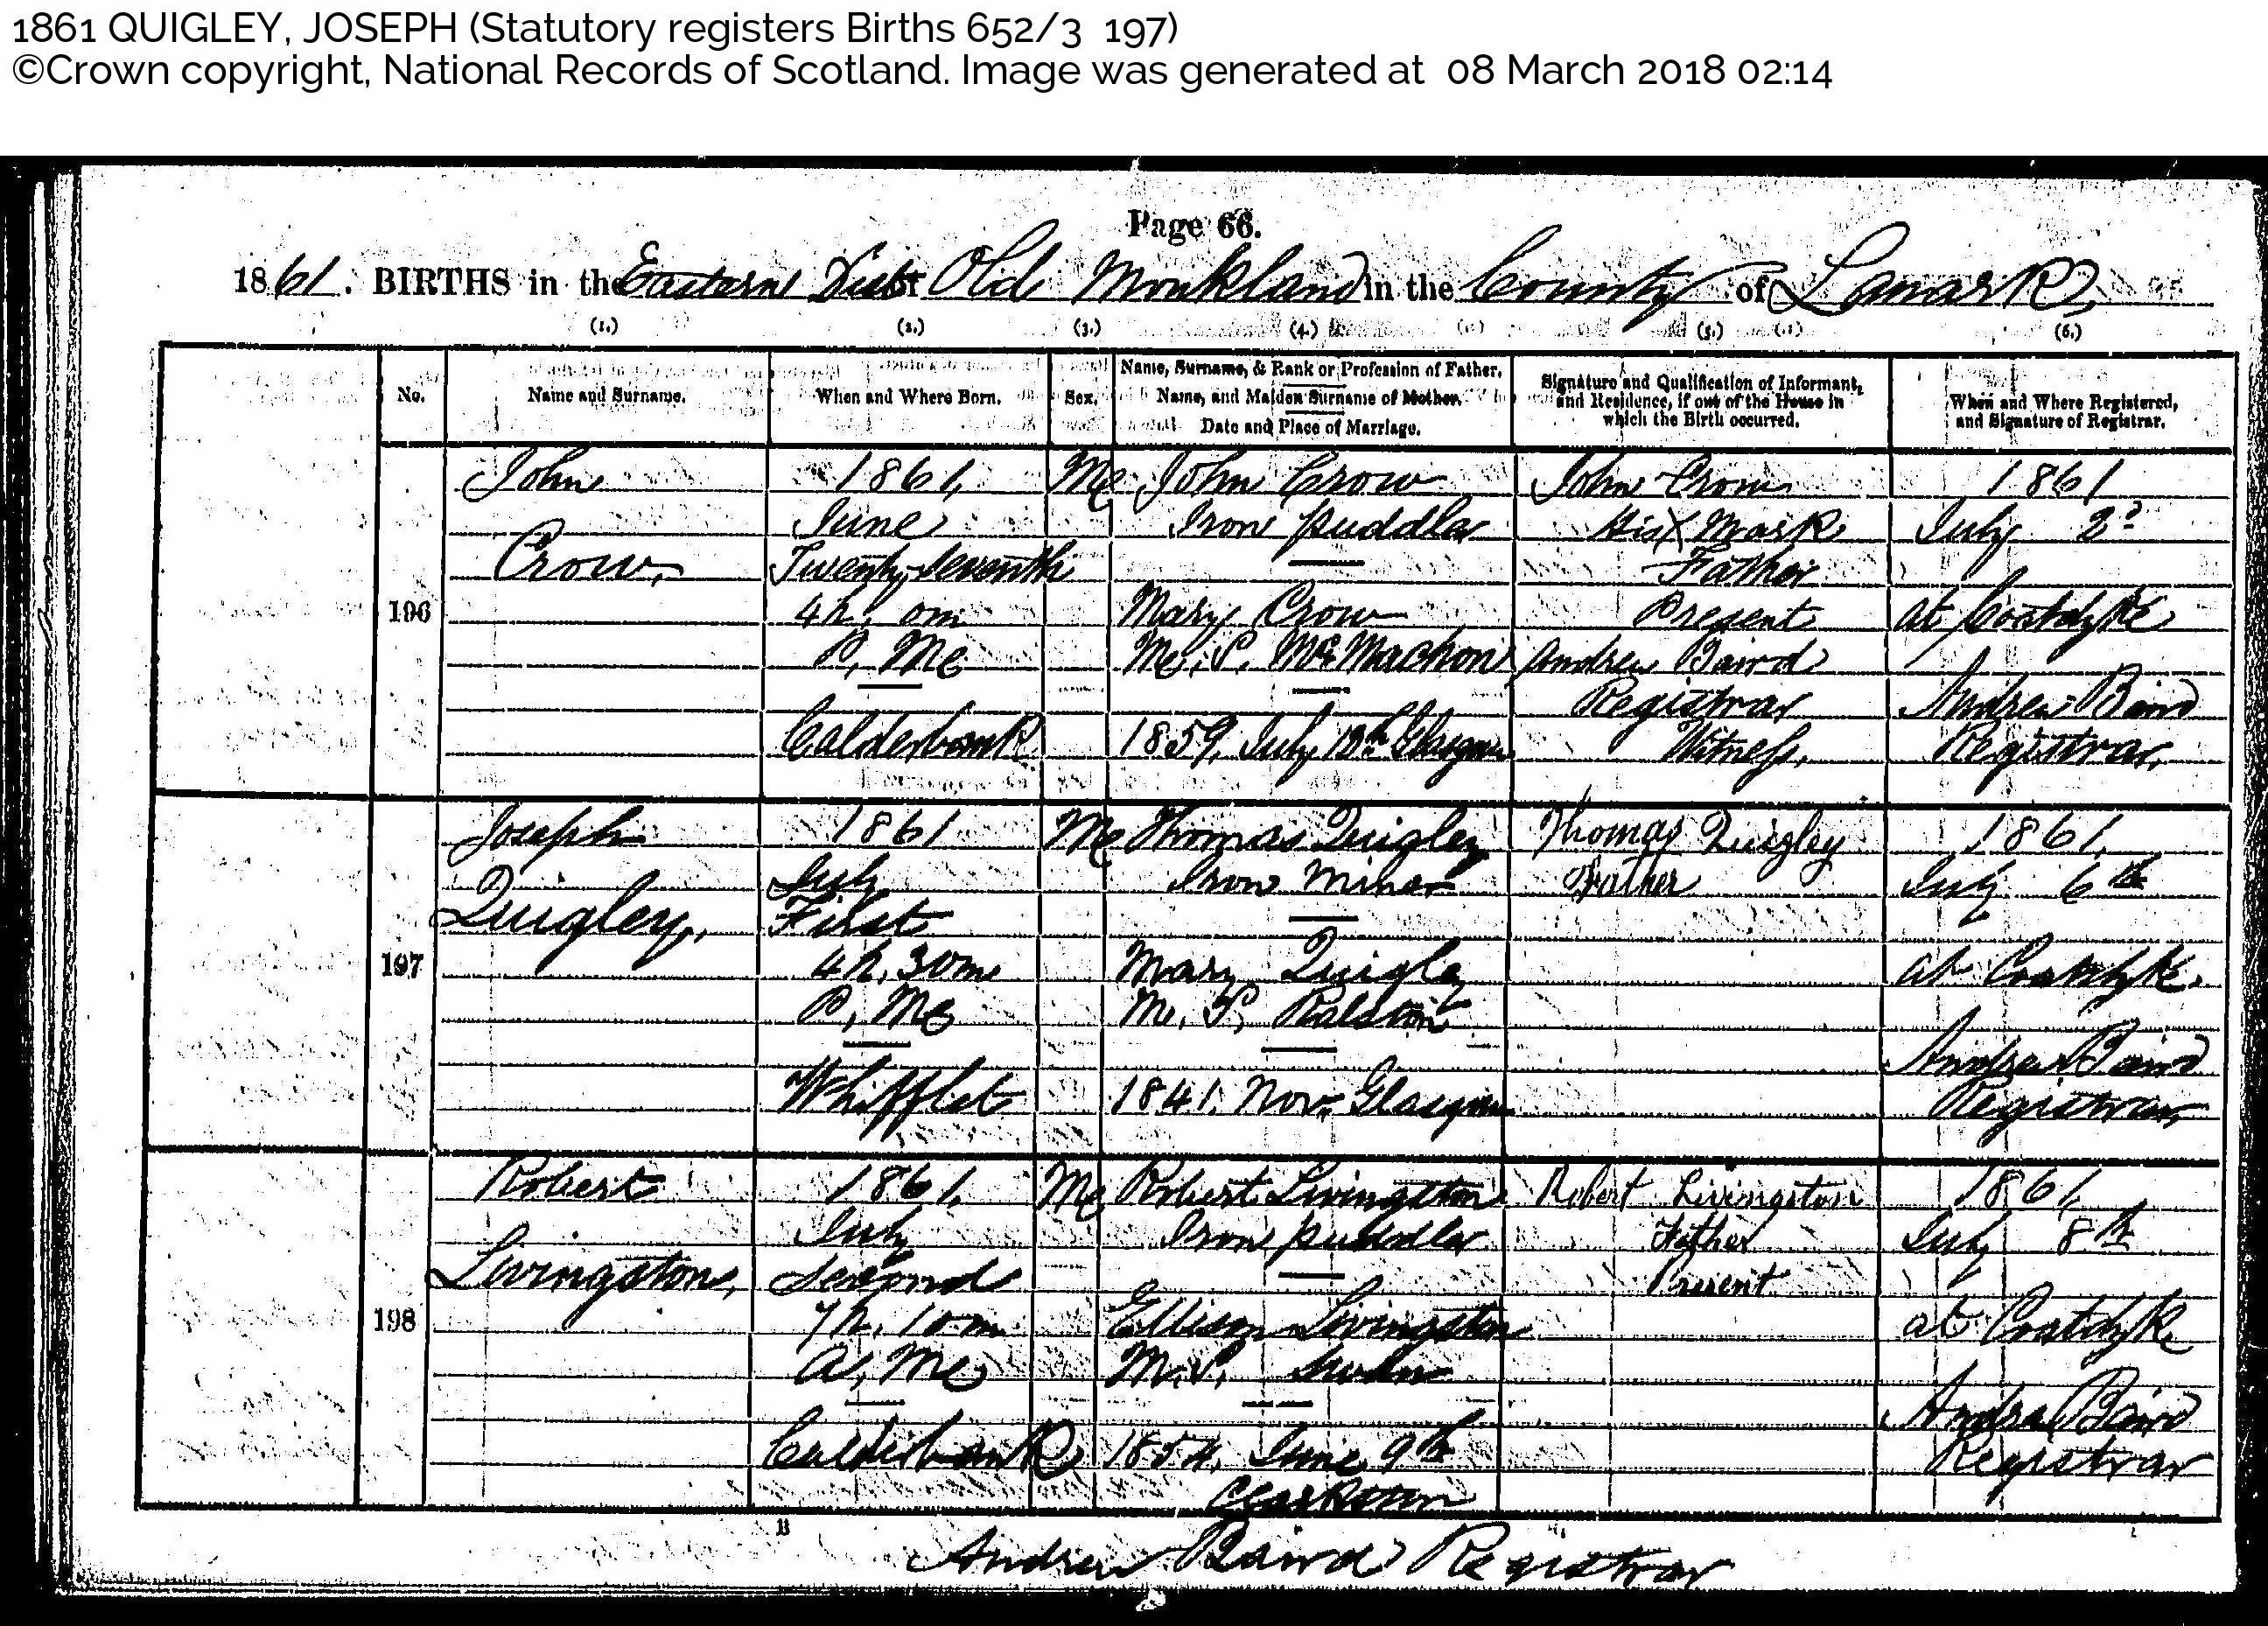 1861 QUIGLEY, JOSEPH (Statutory registers Births 652/3 197)
©Crown copyright, National Records of Scotland. Image was generated at 08 March 2018 02:14
Page 66.
1861. BIRTHS in the Eastern Dist of Old Monkland in the County of Lanark
(1.) (2.) (3.) (4.) (5.) (6.)
No.
Name and Surname.
When and Where Born.
Sex.
Name, Surname, & Rank or Profession of Father.
Name, and Maiden Surname of Mother.
Date and Place of Marriage.
Signature and Qualification of Informant,
and Residence, if out of the House in
which the Birth occurred.
When and Where Registered,
and Signature of Registrar.
196
John
Crow,
1861,
June
Twenty seventh
4h, 0m
P, M
Calderbank
M
John Crow
Iron puddler
Mary Crow
M. S. McMachon
1859, July 12th Glasgow
John Crow
His X Mark
Father
Present
Andrew Baird
Registrar
Witness.
1861
July 2d
at Coatdyke
Andrew Baird
Registrar.
197
Joseph
Quigley,
1861
July
First
4h, 30m
P, M
Whifflet
M
Thomas Quigley
Iron Miner
Mary Quigley
M. S. Ralston
1841. Nov. Glasgow
Thomas Quigley
Father
1861,
July 6th
at Coatdyke.
Andrew Baird
Registrar
198
Robert
Livingston,
1861,
July
Second
7h, 10m
A, M
Calderbank
M
Robert Livingston
Iron puddler
Ellison Livingston
M. S. Swan
1854, June 9th
Clarkston
Robert Livingston
Father
Present
1861,
July 8th
at Coatdyke
Andrew Baird
Registrar
B
Andrew Baird Registrar